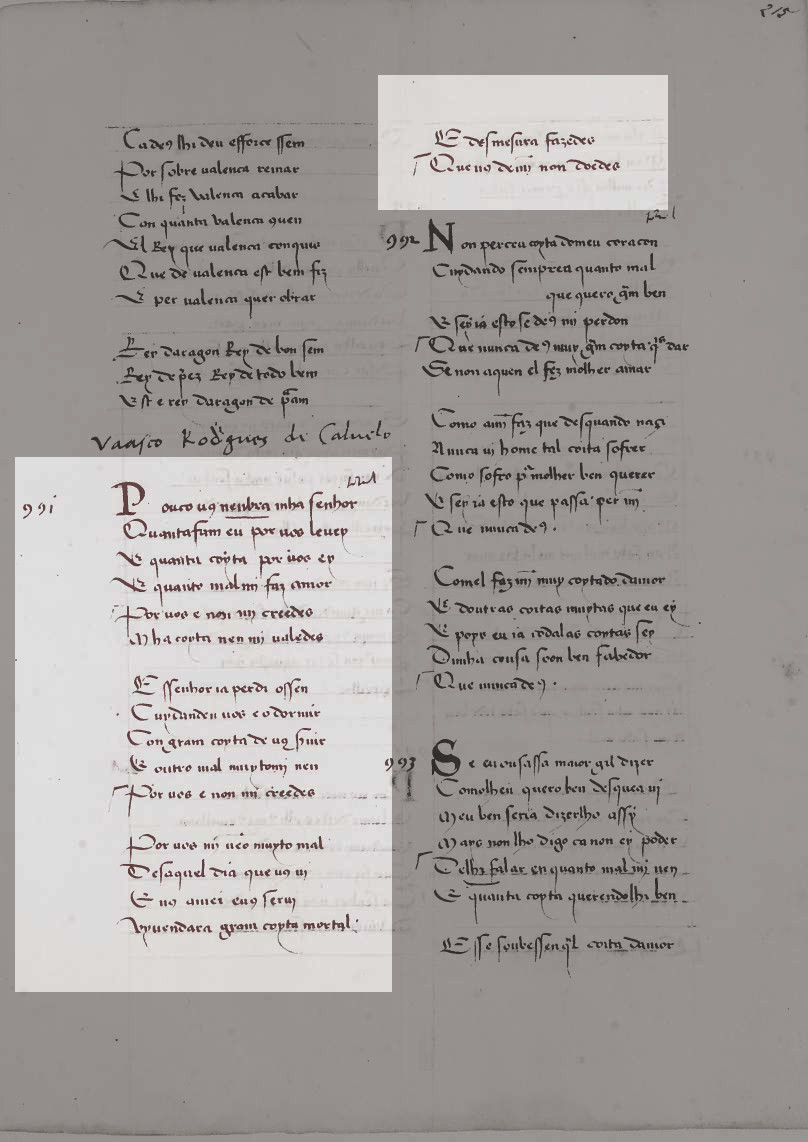 215
Ca deꝯ lhi deu efforce ssem
Por sobre valença reinar
E lhi fez Valença acabar
Con quanta valença quen
El Rey que valença conquis
Que de valença est bem fiz
E per valença quer obrar
Rey daragon Rey de bon sem
Rey de prez Rey de todo bem
Est e rey daragon de pram
Vaasco Rodrigues de Caluelo
991
Pouco uꝯ nenbra mha senhor
Quantafam eu por uos leuey
E quanta coyta por uos ey
E quanto mal mi faz amor
Por uos e non mi creedes
Mha coyta nen mi ualedes
E ssenhor ia perdi o ssen
Cuydanden uos e o dormir
Con gram coyta de uꝯ seruir
E outro mal muytomi uen
Por uos e non mi creedes
Por uos mi ueo muyto mal
Desaquel dia que uꝯ ui
E uꝯ amei euꝯ serui
Vyuendara gram coyta mortal
E desmesura fazedes
Que uꝯ de mi non doedes
992
Non perceu coyta do meu coracon
Cuydando sempre en quanto mal
que quero gram ben
E seyia esto se deꝯ mi perdon
Que nunca deꝯ muy gram coyta quis dar
Se non aquen el fez molher amar
Como amj̃ faz que desquando naçi
Nunca ui home tal coita sofrer
Como sofro por molher ben querer
E sey ia esto que passa per mj̃
Que nunca deꝯ .
Comel faz mj̃ muy coytado damor
E doutras coitas muytas que eu ey
E poys eu ia todalas coytas sey
Dunha cousa soon ben sabedor
Que nunca deꝯ .
993
Se eu ousassa maior gil dizer
Comolheu quero ben desqueã ui
Meu ben seria dizerlho assy
Mays non lho digo ca non ey poder
Delhi falar en quanto mal mj̃ uen
E quanta coyta querendolhi ben
E sse soubessen qual coita damor